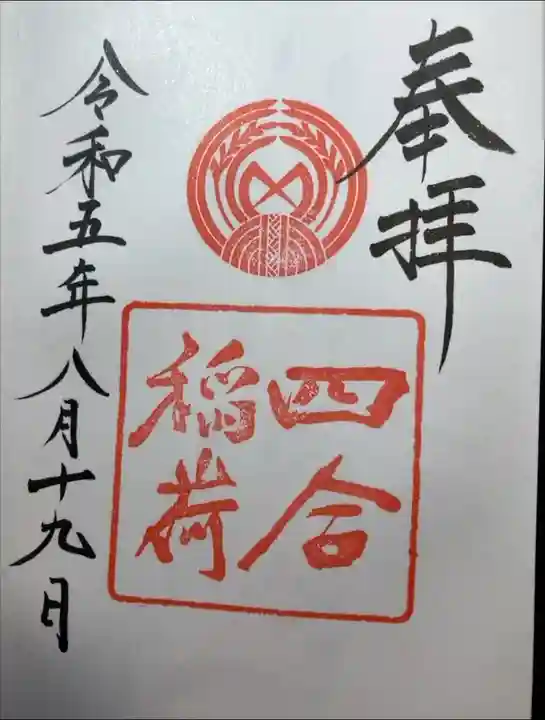 奉拝
四合
稲荷
令和五年八月十九日